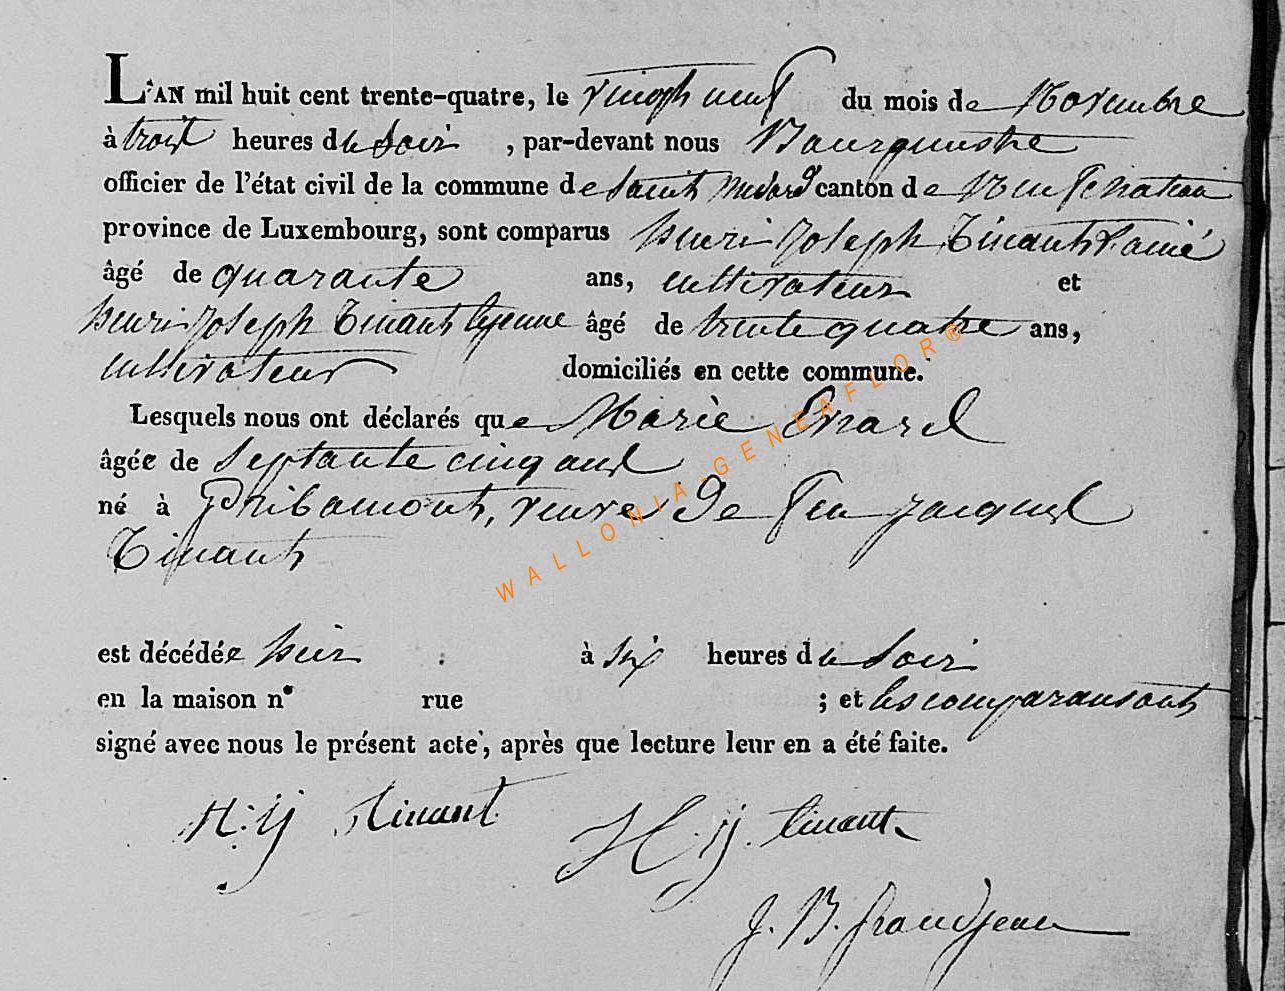 L'AN mil huit cent trente-quatre, le vingt neuf du mois de Novembre
à trois heures du Soir , par-devant nous Bourguestre
officier de l'état civil de la commune de Saint Medard canton de Neufchateau
province de Luxembourg, sont comparus henri Joseph Tinant l'ainé
âgé de quarante ans, cultivateur et
henri Joseph Tinant lejeune âgé de trente quatre ans,
cultivateur domiciliés en cette commune.
Lesquels nous ont déclarés que Marie Enard
âgée de Septante cinq ans
né à Gribamont, veuve De feu jacques
Tinant
est décédée hier à Six heures du Soir
en la maison n° rue ; et les comparans ont
signé avec nous le présent acte, après que lecture leur en a été faite.
H: J Tinant H. J. tinant
J. B. Grandjean
WALLONIA-GENEAFLOR®